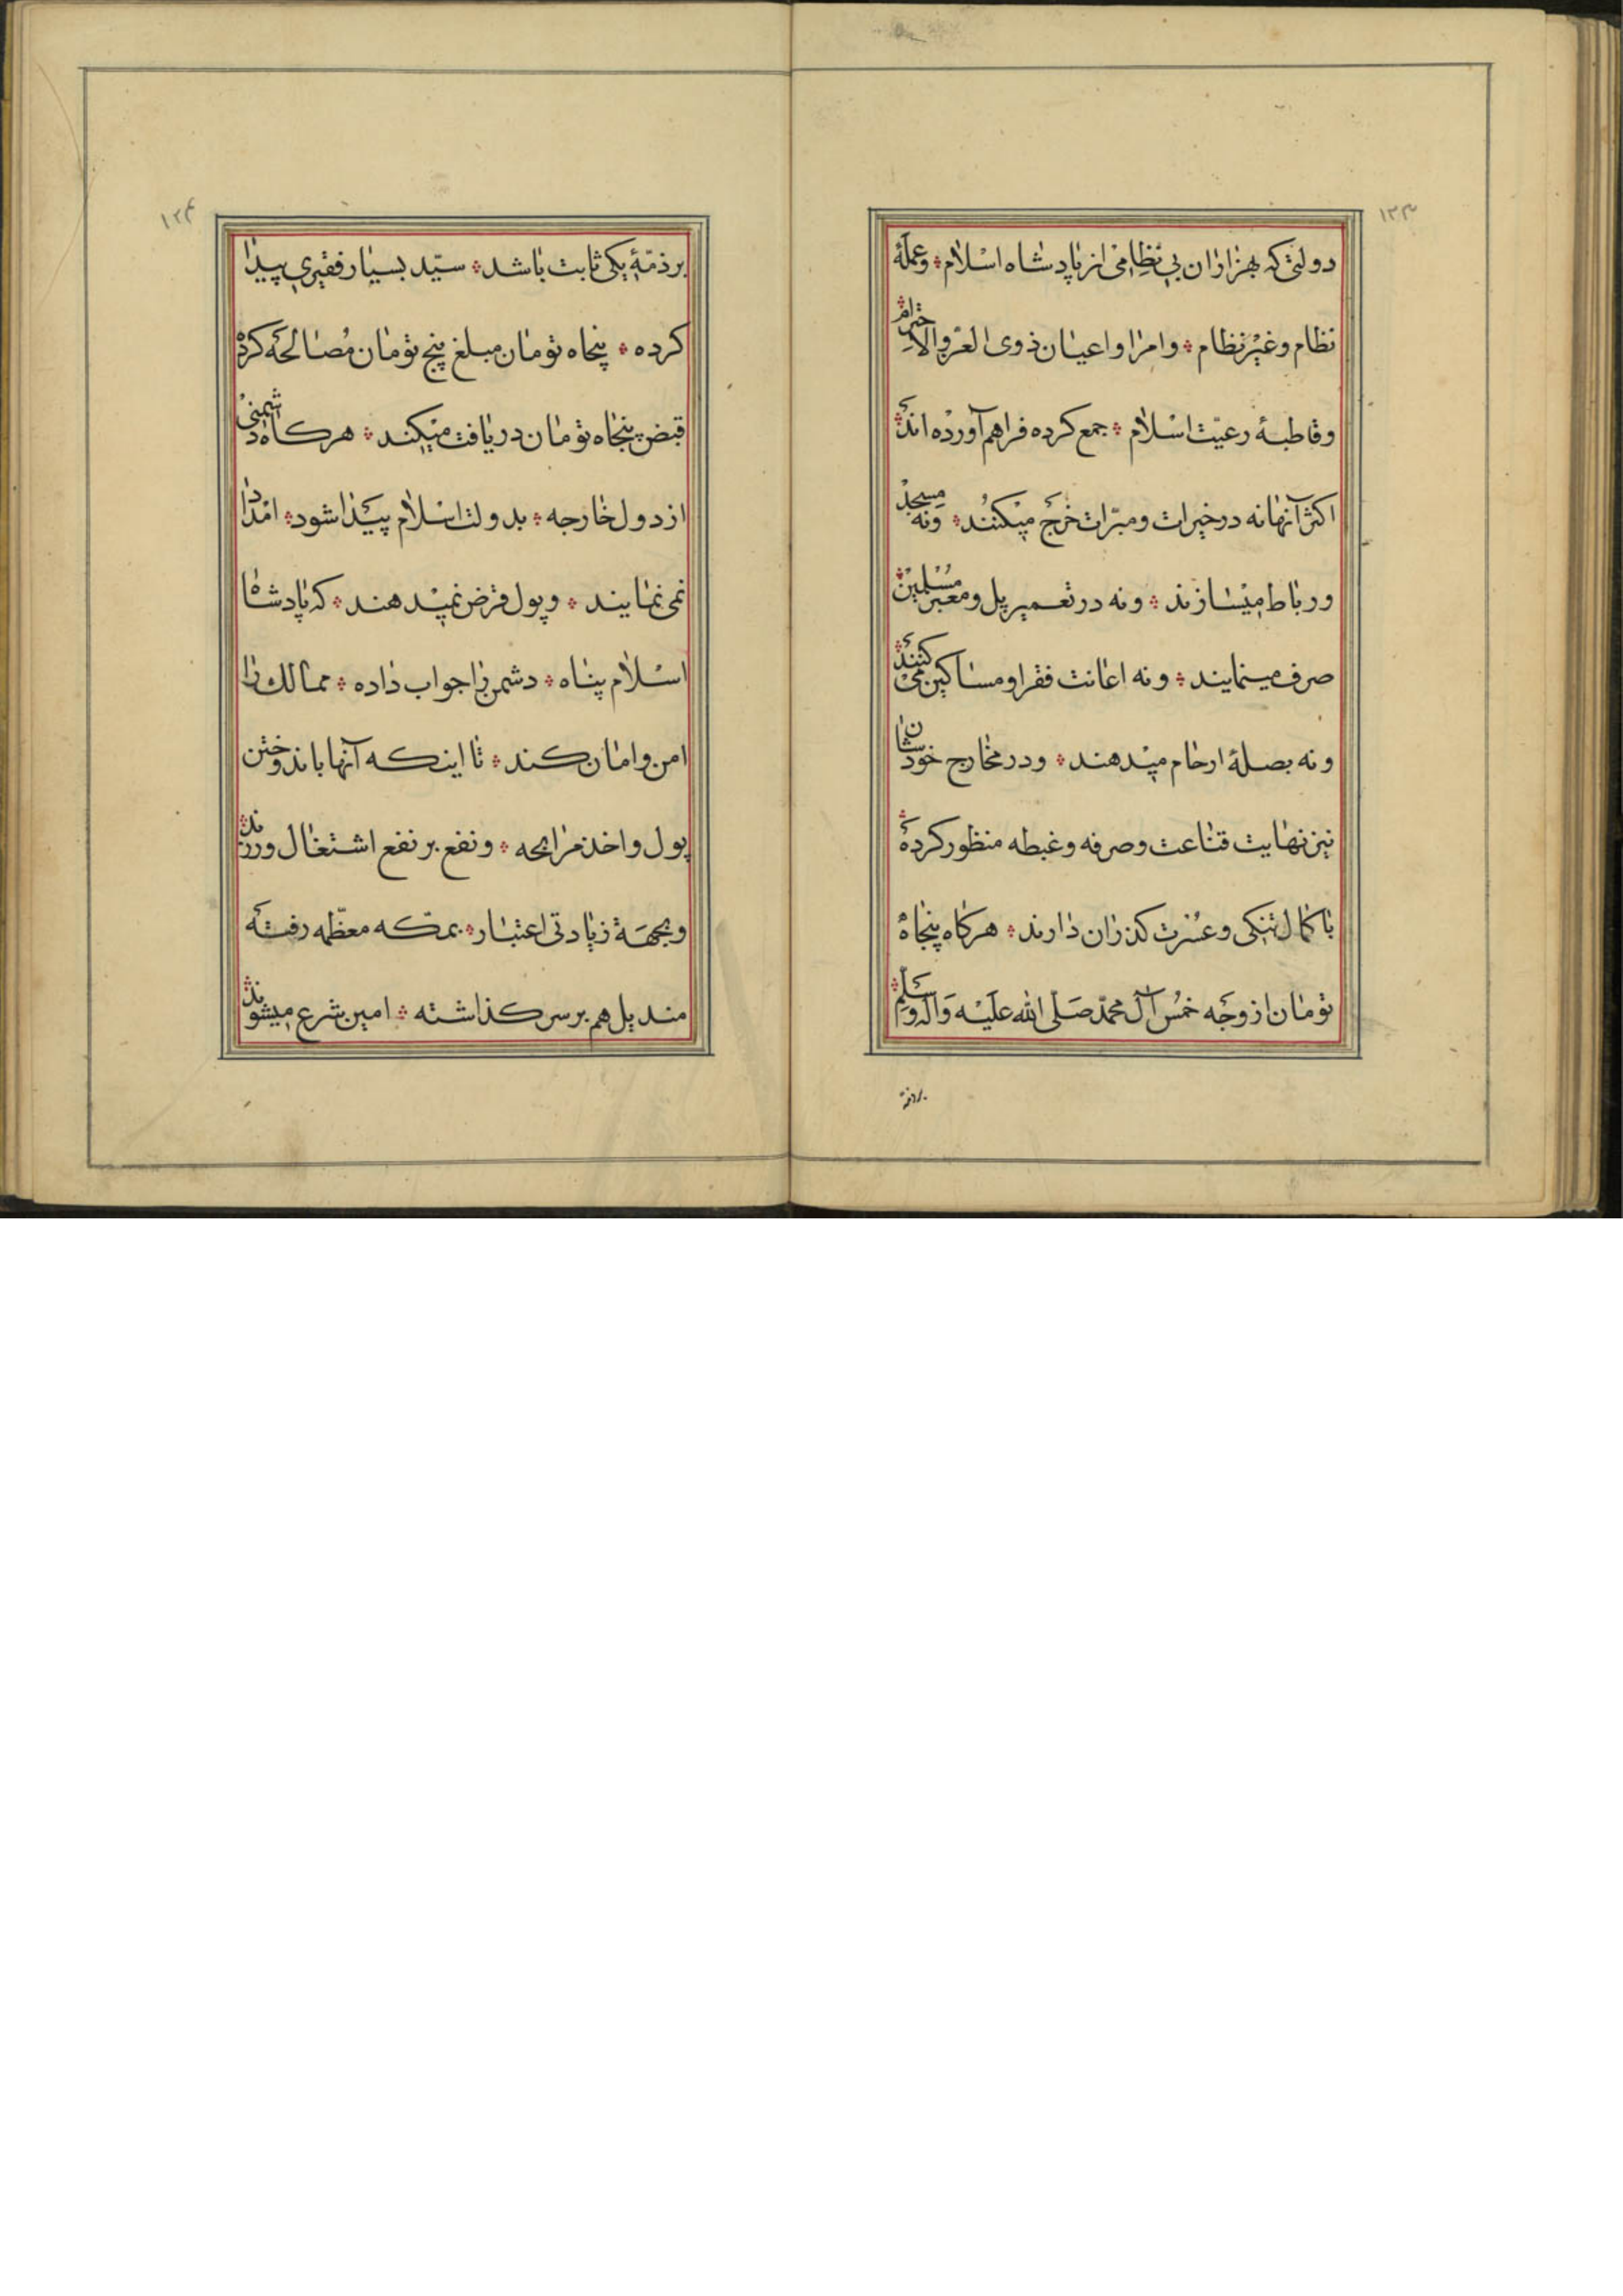 ۱۲۳
دولتی که بهزاران بی نظامی از پادشاه اسلام ؞ و عملهٔ
نظام و غیر نظام ؞ و امرا و اعیان ذوی العزّ والاحترام ؞
و قاطبهٔ رعیّت اسلام ؞ جمع کرده فراهم آورده اند ؞
اکثر آنها نه در خیرات و مبرّات خرج میکنند ؞ و نه مسجد
و رباط میسازند ؞ و نه در تعمیر پل و معبر مسلمین ؞
صرف مینمایند ؞ و نه اعانت فقرا و مساکین می کنند ؞
و نه بصلهٔ ارحام میدهند ؞ و در مخارج خودشان
نیز نهایت قناعت و صرفه و غبطه منظور کرده ؞
با کمال تنکی و عسرت کذران دارند ؞ هرکاه پنجاه
تومان از وجه خمس آل محمّد صَلّی الله عَلَیْه وَآلِه وَسلّم ؞
بر ذمّه
۱۲۴
بر ذمّهٔ یکی ثابت باشد ؞ سیّد بسیار فقیری پیدا
کرده ؞ پنجاه تومان مبلغ پنج تومان مُصالحه کرده
قبض پنجاه تومان دریافت میکند ؞ هرکاه دشمنی
از دول خارجه ؞ بدولت اسلام پیدا شود ؞ امداد
نمی نمایند ؞ و پول قرض نمیدهند ؞ که پادشاه
اسلام پناه ؞ دشمن را جواب داده ؞ ممالک را
امن و امان کند ؞ تا اینکه آنها باندوختن
پول و اخذ مرابحه ؞ و نفع بر نفع اشتغال ورزند ؞
و بجهة زیادتی اعتبار ؞ بمکّه معظّمه رفته
مندیل هم بر سر کذاشته ؞ امین شرع میشوند ؞